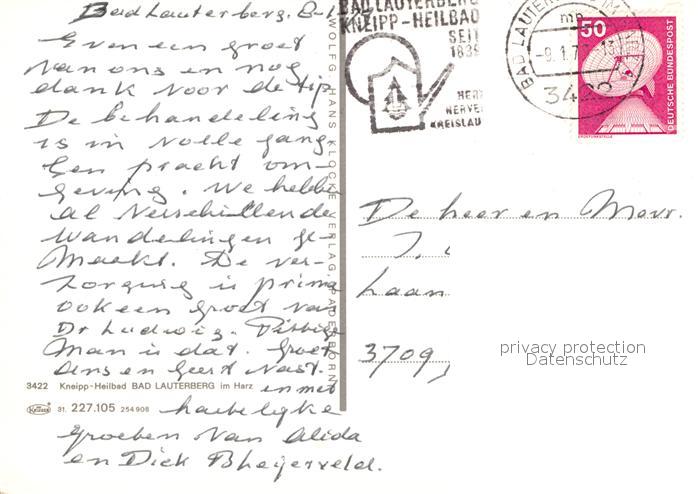 Bad Lauterberg. 8-1
Even een groet
van ons en nog
dank voor de tip
De behandeling
is in volle gang
Een pracht om-
geving. We hebbe
al verschillende
wandelingen ge-
maakt. De ver-
zorging is prima
ook een groet van
Dr Ludwig. Pittige
man is dat. Groet
Ans en Geert Vast.
en met
hartelijke
groeten van Alida
en Dick
3422 Kneipp-Heilbad BAD LAUTERBERG im Harz
31. 227.105 254 908
WOLFG. HANS KLOCKE VERLAG, PADERBORN
BAD LAUTERBERG
KNEIPP-HEILBAD
SEIT
1839
HERZ
NERVEN
KREISLAU
BAD LAUTERBERG IM
mb
-9.1.7
13
34
50
DEUTSCHE BUNDESPOST
ERDFUNKSTELLE
De heer en Mevr.
J.
Laan
3709
privacy protection
Datenschutz